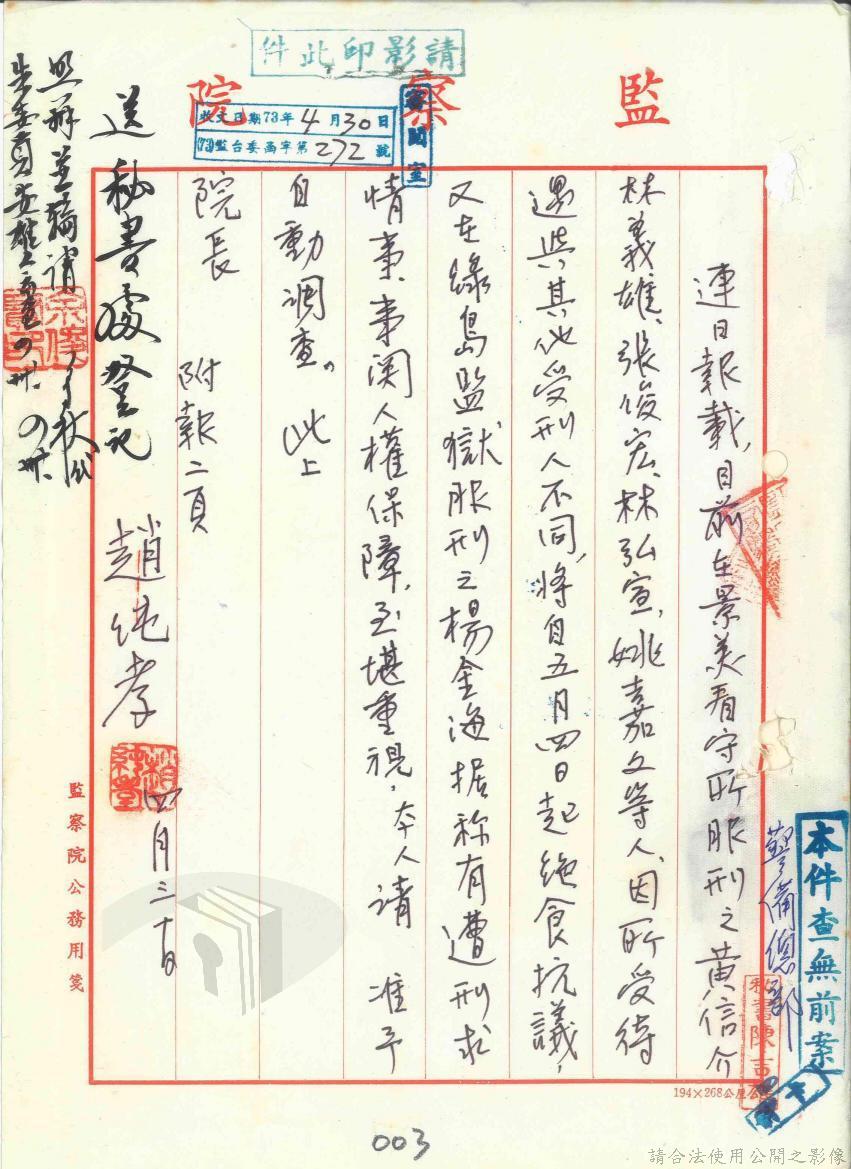 請影印此件
監察院
收文日期73年4月30日
(73)監台委函字第272號
審閱室
連日報載,目前在景美看守所服刑之黃信介
林義雄、張俊宏、林弘宣、姚嘉文等人、因所受待
遇與其他受刑人不同,將自五月四日起絕食抗議,
又在綠島監獄服刑之楊金海据称有遭刑求
情事、事関人權保障,至堪重視,本人請 准予
自動調查。此上
院長
附報二頁
趙純孝 四月三十日
送秘書處登記
監察院公務用箋
警備總部
本件查無前案
194×268公厘
003
請合法使用公開之影像